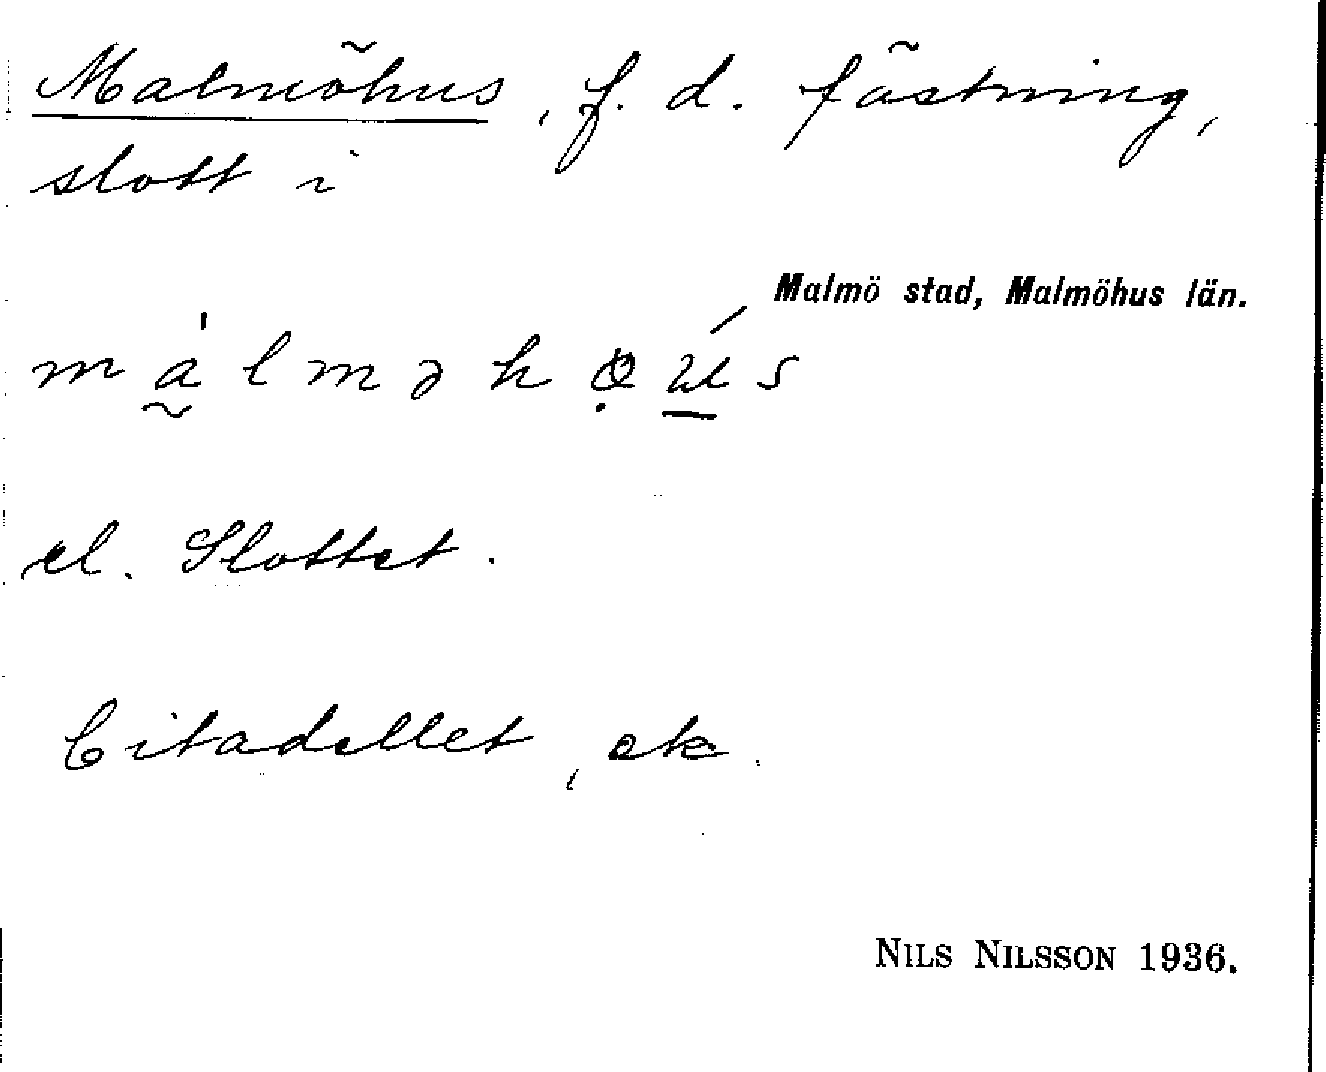 Malmöhus, f. d. fästning,
slott i
Malmö stad, Malmöhus län.
el. Slottet.
Citadellet, ek.
NILS NILSSON 1936.